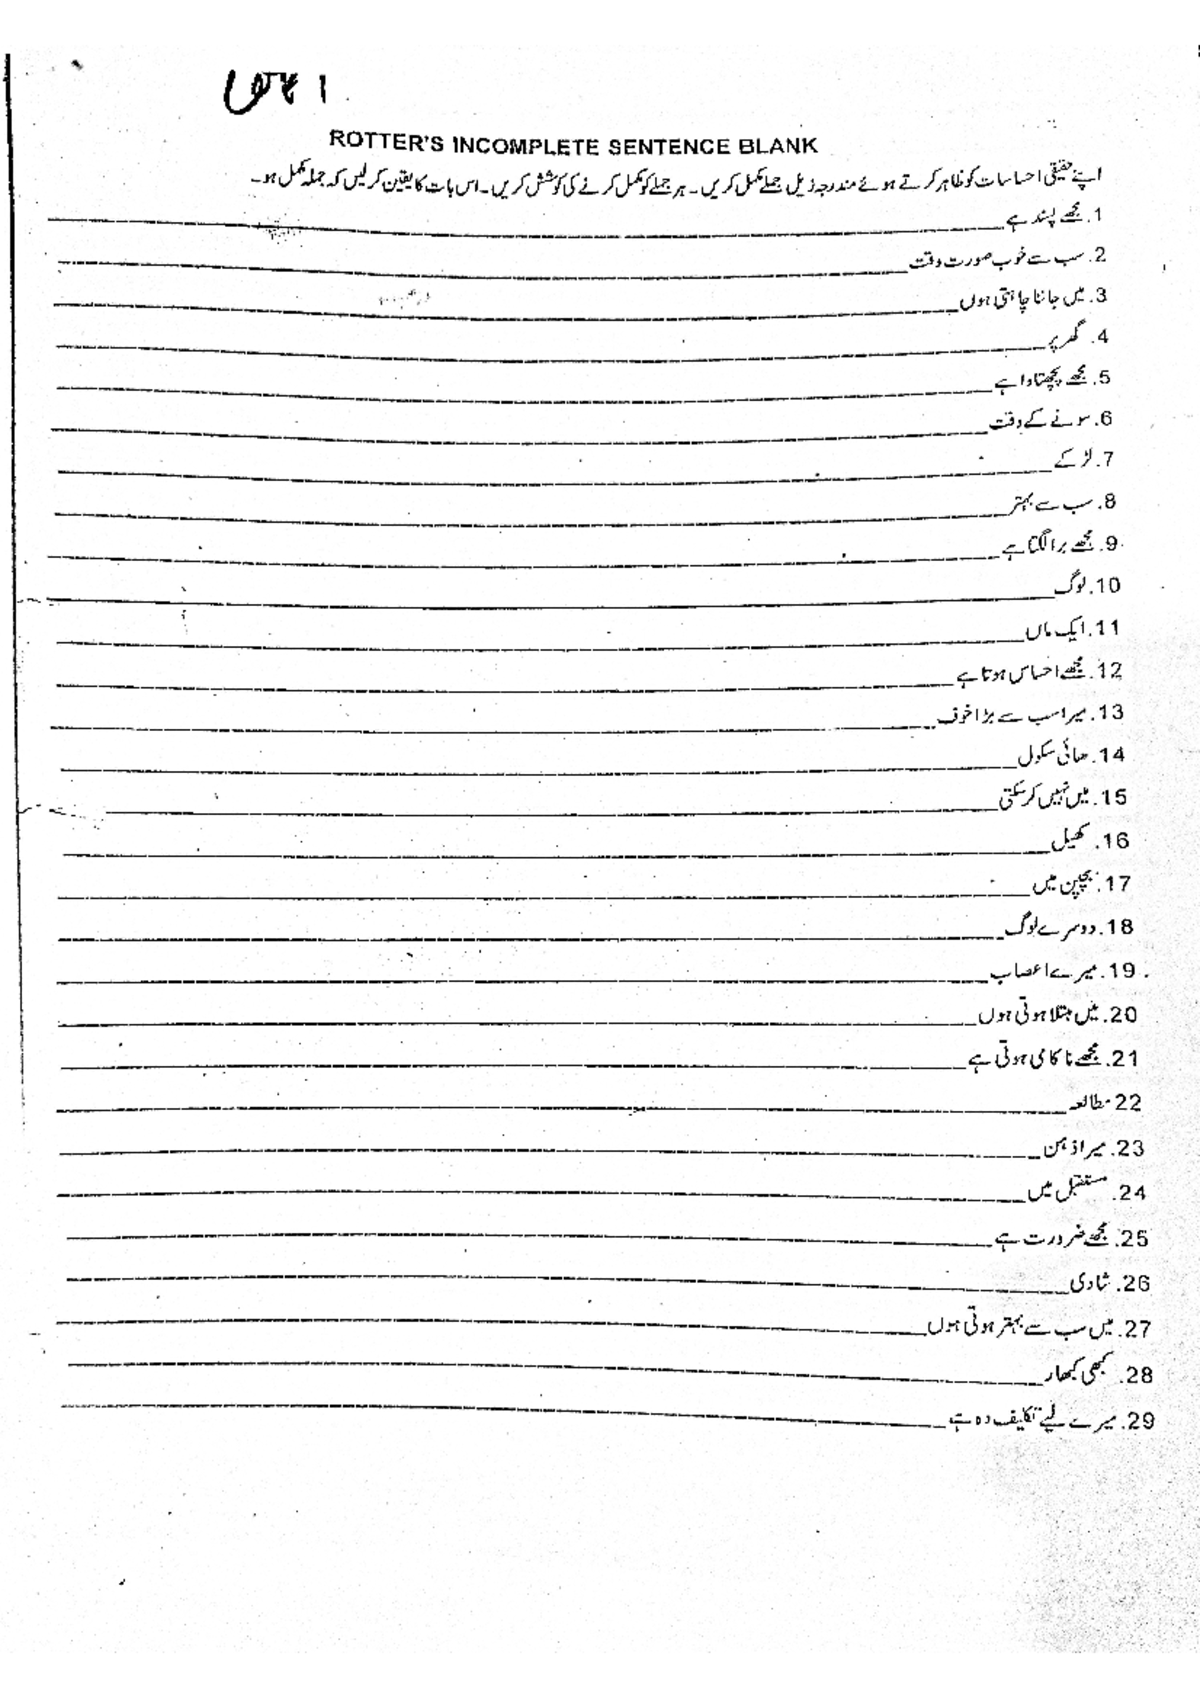 ROTTER'S INCOMPLETE SENTENCE BLANK
اپنے حقیقی احساسات کو ظاہر کرتے ہوئے مندرجہ ذیل جملے مکمل کریں۔ ہر جملے کو مکمل کرنے کی کوشش کریں۔ اس بات کا یقین کر لیں کہ جملہ مکمل ہو۔
1. مجھے پسند ہے
2. سب سے خوب صورت وقت
3. میں جاننا چاہتی ہوں
4. گھر پر
5. مجھے پچھتاوا ہے
6. سونے کے وقت
7. لڑکے
8. سب سے بہتر
9. مجھے برا لگتا ہے
10. لوگ
11. ایک ماں
12. مجھے احساس ہوتا ہے
13. میرا سب سے بڑا خوف
14. ھائی سکول
15. میں نہیں کر سکتی
16. کھیل
17. بچپن میں
18. دوسرے لوگ
19. میرے اعصاب
20. میں مبتلا ہوتی ہوں
21. مجھے ناکامی ہوتی ہے
22 مطالعہ
23. میرا ذہن
24. مستقبل میں
25. مجھے ضرورت ہے
26. شادی
27. میں سب سے بہتر ہوتی ہوں
28. کبھی کبھار
29. میرے لیے تکلیف دہ ہے